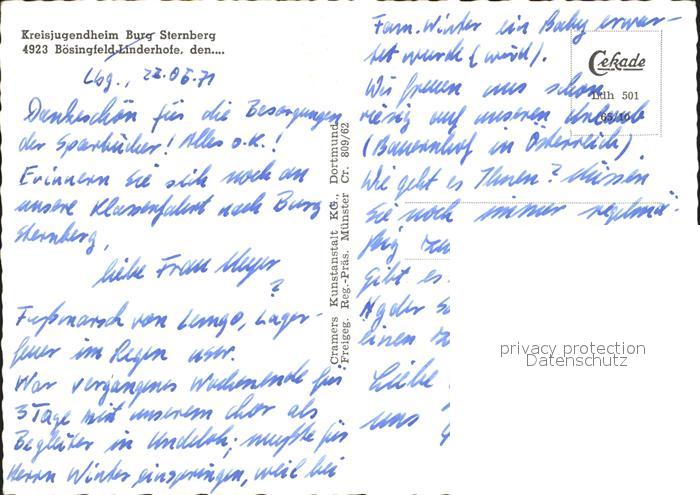 Kreisjugendheim Burg Sternberg
4923 Bösingfeld-Linderhofe, den....
Lbg., 22.06.71
Dankeschön für die Besorgungen
der Sparbücher! Alles o.k.!
Erinnern Sie sich noch an
unsere Klassenfahrt nach Burg
Sternberg,
liebe Frau Meyer
?
Fußmarsch von Lemgo, Lager-
feuer im Regen usw.
War vergangenes Wochenende für
3 Tage mit unserem Chor als
Begleiter in Undeloh; mußte für
Herrn Winter einspringen, weil bei
Cramers Kunstanstalt KG., Dortmund
Freigeg. Reg.-Präs. Münster Cr. 809/62
Fam. Winter ein Baby erwar-
tet wurde (wird).
Wir freuen uns schon
riesig auf unseren Urlaub
(Bauernhof in Österreich)
Wie geht es Ihnen? Müssen
Sie noch immer regelmä-
ßig
gibt es
einen
Liebe
uns
Cekade
Ldh 501
privacy protection
Datenschutz